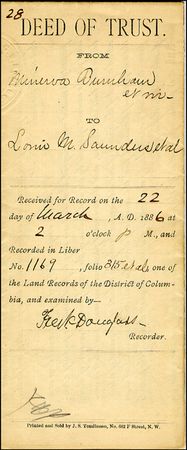 28
DEED OF TRUST.
FROM
Minerva Burnham
et vir
TO
Louis M. Saunders et al
Received for Record on the 22
day of March, A. D. 1886 at
2 o'clock P M., and
Recorded in Liber
No. 1169, folio 315 et al one of
the Land Records of the District of Colum-
bia, and examined by
Fredk Douglass
Recorder.
Printed and Sold by J. S. Tomlinson, No. 602 F Street, N. W.